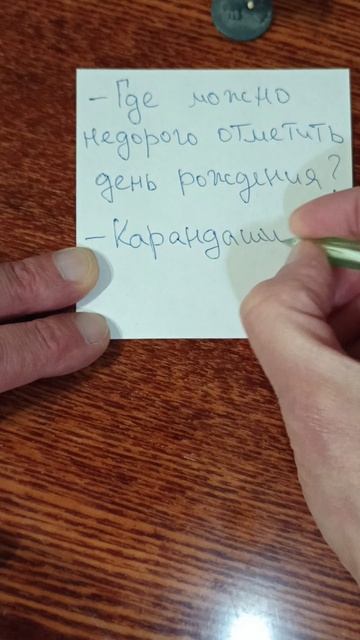 - Где можно
недорого отметить
день рождения?
- Карандаши